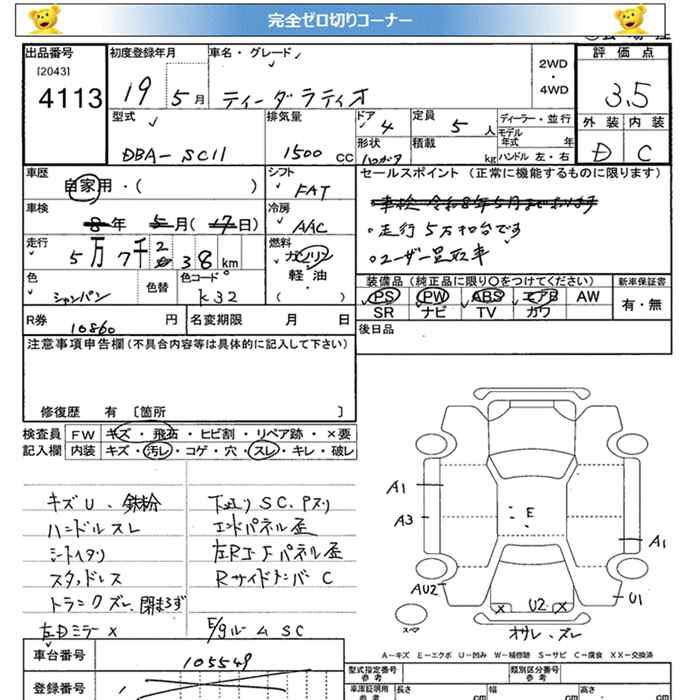 完全ゼロ切りコーナー
出品番号 初度登録年月 車名・グレード 評価点
[2043]
4113 19 5月 ティーダラティオ 2WD・4WD 3.5
型式 排気量 ドア 定員 ディーラー・並行 外装 内装
DBA-SC11 1500 CC 4 5人 モデル年式 年 D C
形状 積載 kg ハンドル 左・右
車歴 シフト セールスポイント (正常に機能するものに限ります)
自家用・( ) FAT 車検令和8年5月まで
車検 冷房 ・走行5万km台です
8年 5月(17日) AAC ・ユーザー買取車
走行 燃料
5万7千238km ガソリン
軽・油
( )
色 色替 色コード 装備品 (純正品に限り○をつけてください) 新車保証書
シャンパン K32 PS PW ABS エアB AW 有・無
SR ナビ TV カワ
R券 10860 円 名変期限 月 日 後日品
注意事項申告欄(不具合内容等は具体的に記入して下さい)
修復歴 有 [箇所 ]
検査員 FW キズ・飛石・ヒビ割・リペア跡・×要
記入欄 内装 キズ・汚レ・コゲ・穴・スレ・キレ・破レ
キズU、鉄粉 下廻りSC.Pズリ
ハンドルスレ エンドパネル歪
シートヘタリ 左RエFパネル歪
スタッドレス RサイドメンバーC
トランクズレ、閉まらず
左Dミラー× E/gルームSC
A1
A3
E
A1
AU2
U2
U1
スペア
オサレ、ズレ
A-キズ E-エクボ U-凹み W-補修跡 S-サビ C-腐食 XX-交換済
車台番号 105549
登録番号
型式指定番号 類別区分番号
車庫証明用 長さ cm 幅 cm 高さ cm
参考